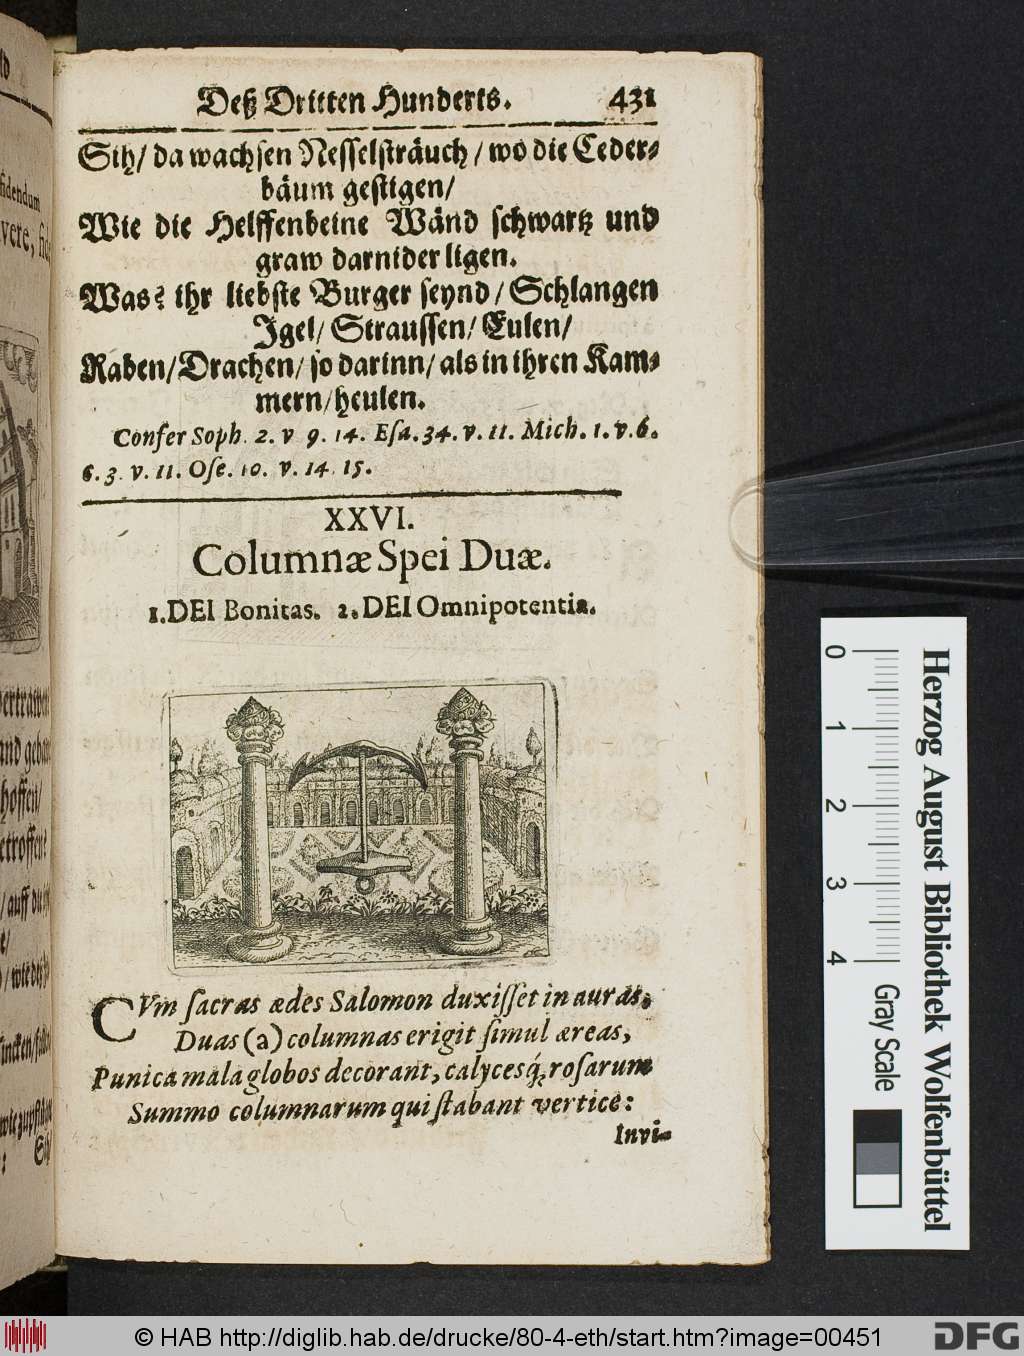 Deß Dritten Hunderts. 431
Sih/ da wachsen Nesselsträuch / wo die Ceder-
bäum gestigen/
Wie die Helffenbeine Wänd schwartz und
graw darnider ligen.
Was? ihr liebste Burger seynd / Schlangen
Igel/ Straussen/ Eulen/
Raben/ Drachen/ so darinn/ als in ihren Kam-
mern/ heulen.
Confer Soph. 2. v 9. 14. Esa. 34. v. 11. Mich. 1. v. 6.
6. 3. v. 11. Ose. 10. v. 14. 15.
XXVI.
Columnæ Spei Duæ.
1. DEI Bonitas. 2. DEI Omnipotentia.
CVm sacras ædes Salomon duxisset in auras,
Duas (a) columnas erigit simul æreas,
Punica mala globos decorant, calycesq́; rosarum
Summo columnarum qui stabant vertice:
Invi-
fidendum
vere,
hoffen/
0 1 2 3 4
Gray Scale
Herzog August Bibliothek Wolfenbüttel
© HAB http://diglib.hab.de/drucke/80-4-eth/start.htm?image=00451
DFG